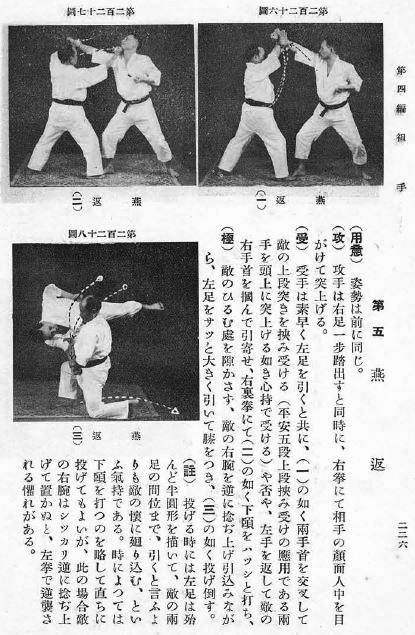 第四編 組手
二二六
第二百二十六圖
(一) 燕返
第二百二十七圖
(二) 燕返
第五 燕返
(用意) 姿勢は前に同じ。
(攻) 攻手は右足一步踏出すと同時に、右拳にて相手の顏面人中を目
がけて突上げる。
(受) 受手は素早く左足を引くと共に、(一)の如く兩手首を交叉して
敵の上段突きを挾み受ける(平安五段上段挾み受けの應用である兩
手を頭上に突上げる如き心持で受ける)や否や、左手を返して敵の
右手首を掴んで引寄せ、右裏拳にて(二)の如く下顎をハッシと打ち、
(極) 敵のひるむ處を隙かさず、敵の右腕を逆に捻ぢ上げ引込みなが
ら、左足をサッと大きく引いて膝をつき、(三)の如く投げ倒す。
第二百二十八圖
(三) 燕返
(註) 投げる時には左足は殆
んど半圓形を描いて、敵の兩
足の間位まで、引くと言ふよ
りも敵の懷に廻り込む、とい
ふ氣持である。時によつては
下顎を打つのを略して直ちに
投げてもよいが、此の場合敵
の右腕はシツカリ逆に捻ぢ上
げて置かぬと、左拳で逆襲さ
れる懼れがある。